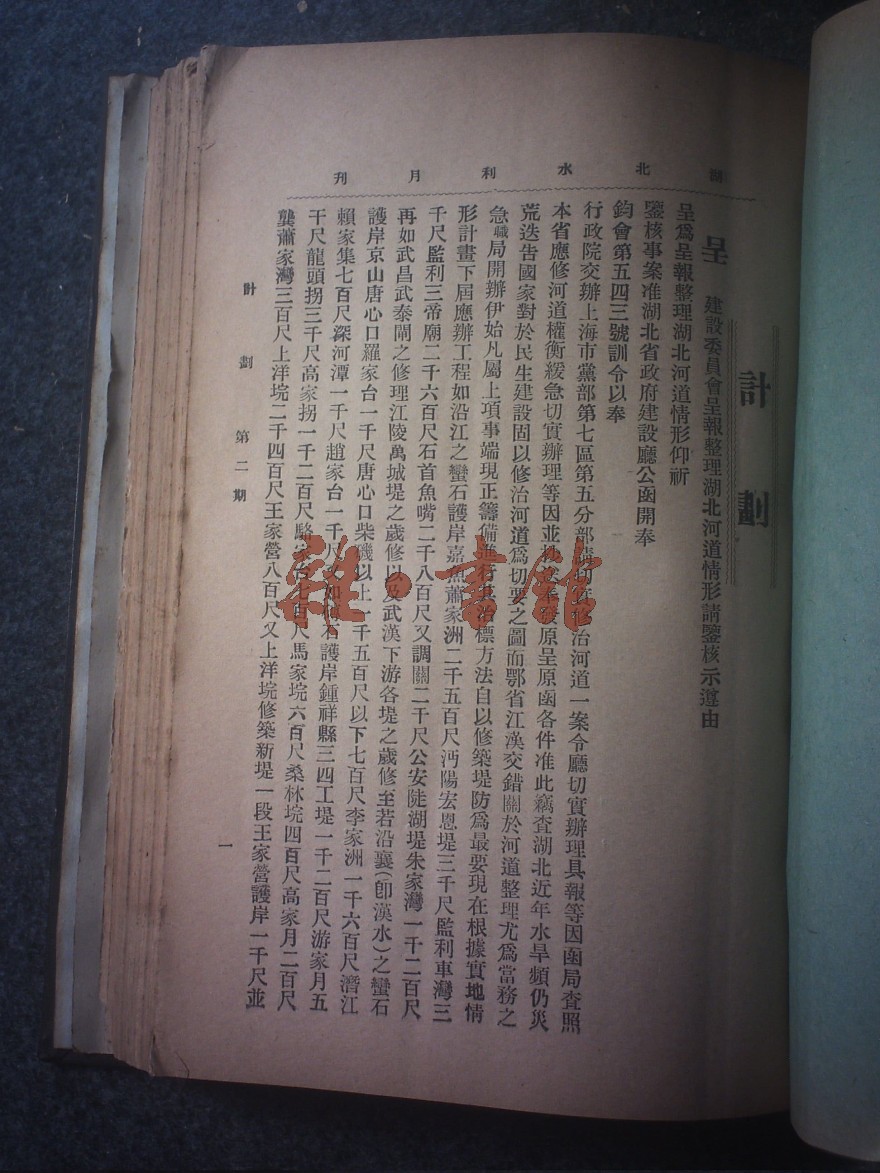 湖北水利月刊
計劃
呈 建設委員會呈報整理湖北河道情形請鑒核示遵由
呈爲呈報整理湖北河道情形仰祈
鑒核事案准湖北省政府建設廳公函開奉
鈞會第五四三號訓令以奉
行政院交辦上海市黨部第七區第五分部請切實修治河道一案令廳切實辦理具報等因函局査照
本省應修河道權衡緩急切實辦理等因並抄發原呈原函各件准此竊査湖北近年水旱頻仍災
荒迭告國家對於民生建設固以修治河道爲切要之圖而鄂省江漢交錯關於河道整理尤爲當務之
急職局開辦伊始凡屬上項事端現正籌備進行其治標方法自以修築堤防爲最要現在根據實地情
形計畫下屆應辦工程如沿江之蠻石護岸嘉魚蕭家洲二千五百尺沔陽宏恩堤三千尺監利車灣三
千尺監利三帝廟二千六百尺石首魚嘴二千八百尺又調關二千尺公安陡湖堤朱家灣一千二百尺
再如武昌武泰閘之修理江陵萬城堤之歲修以及武漢下游各堤之歲修至若沿襄(卽漢水)之蠻石
護岸京山唐心口羅家台一千尺唐心口柴磯以上一千五百尺以下七百尺李家洲一千六百尺潛江
賴家集七百尺深河潭一千尺趙家台一千尺又如石護岸鍾祥縣三四工堤一千二百尺游家月五
千尺龍頭拐三千尺高家拐一千二百尺駱家台七百尺馬家垸六百尺桑林垸四百尺高家月二百尺
龔蕭家灣三百尺上洋垸二千四百尺王家營八百尺又上洋垸修築新堤一段王家營護岸一千尺並
計劃 第二期
一
雜·書館